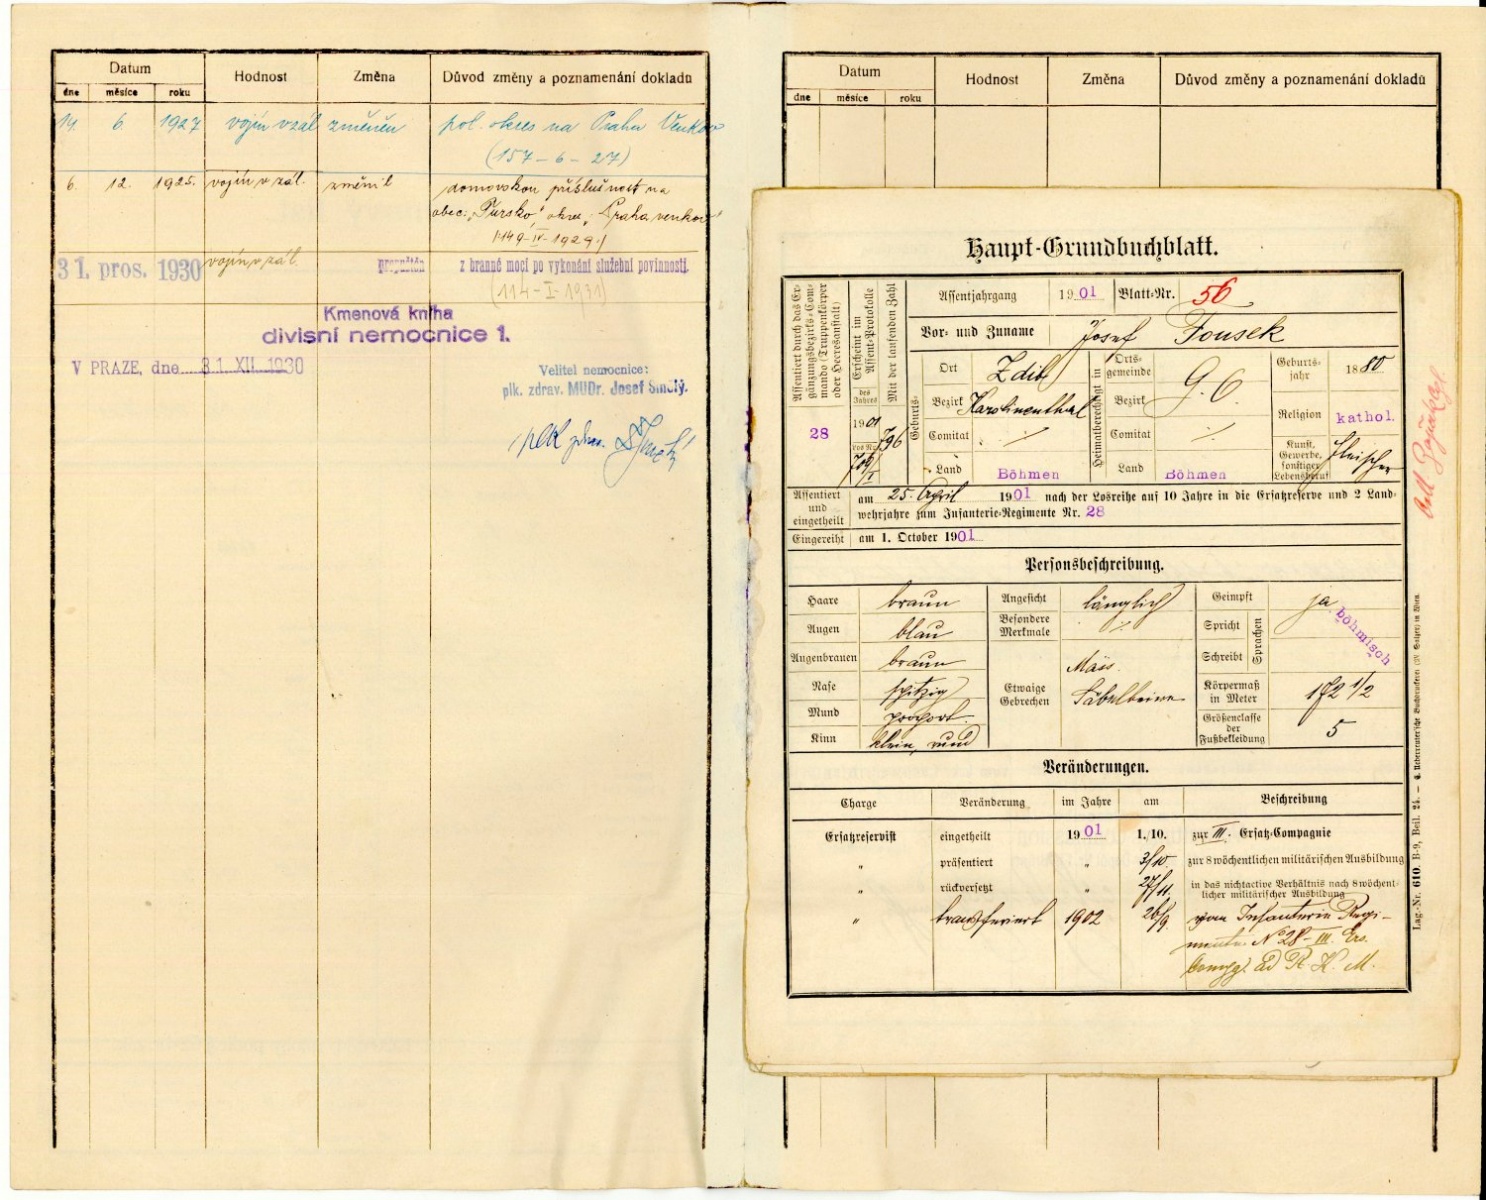 Datum Hodnost Změna Důvod změny a poznamenání dokladů
dne měsíce roku
14. 6. 1927 vojín v zál. změněn pol. okres na Praha Venkov
(157-6-27)
6. 12. 1925. vojín v zál. změnil domovskou příslušnost na
obec: „Tursko,“ okres „Praha venkov“
/:149-IV-1929:/
31. pros. 1930 vojín v zál. propuštěn z branné moci po vykonání služební povinnosti.
(114-I-1931)
Kmenová kniha
divisní nemocnice 1.
V PRAZE, dne 31. XII. 1930
Velitel nemocnice:
plk. zdrav. MUDr. Josef Smelý.
plk zdrav.
Datum Hodnost Změna Důvod změny a poznamenání dokladů
dne měsíce roku
Haupt-Grundbuchblatt.
Assentiert durch das Ergänzungsbezirks-Commando (Truppenkörper oder Heeresanstalt)
28
Erscheint im Assent-Protokolle
des Jahres
1901
Los Nr.
Mit der laufenden Zahl
796
Assentjahrgang 1901 Blatt-Nr. 56
Vor- und Zuname Josef Fousek
Geburts-
Ort Zdib
Bezirk Karolinenthal
Comitat ./.
Land Böhmen
Heimatberechtigt in
Ortsgemeinde
Bezirk
Comitat ./.
Land Böhmen
Geburtsjahr 1880
Religion kathol.
Kunst, Gewerbe, sonstiger Lebensberuf Fleischer
Assentiert und eingetheilt
am 25. April 1901 nach der Losreihe auf 10 Jahre in die Ersatzreserve und 2 Land-
wehrjahre zum Infanterie-Regimente Nr. 28
Eingereiht am 1. October 1901
Personsbeschreibung.
Haare braun
Augen blau
Augenbrauen braun
Nase spitzig
Mund proport.
Kinn klein, rund
Angesicht länglich
Besondere Merkmale ./.
Etwaige Gebrechen Mäss. Säbelbeine
Geimpft ja
Spricht Schreibt Sprachen böhmisch
Körpermaß in Meter 172 1/2
Größenclasse der Fußbekleidung 5
Veränderungen.
Charge Veränderung im Jahre am Beschreibung
Ersatzreservist eingetheilt 1901 1./10. zur III. Ersatz-Compagnie
„ präsentiert „ 3/10. zur 8 wöchentlichen militärischen Ausbildung
„ rückversetzt „ 27/11. in das nichtactive Verhältnis nach 8 wöchent-
licher militärischer Ausbildung
„ transferiert 1902 26/9. vom Infanterie Regi-
mente No 28 - III. Ers.
Compg. ad R. K. M.
Lag.-Nr. 610. B-9, Beil. 24.